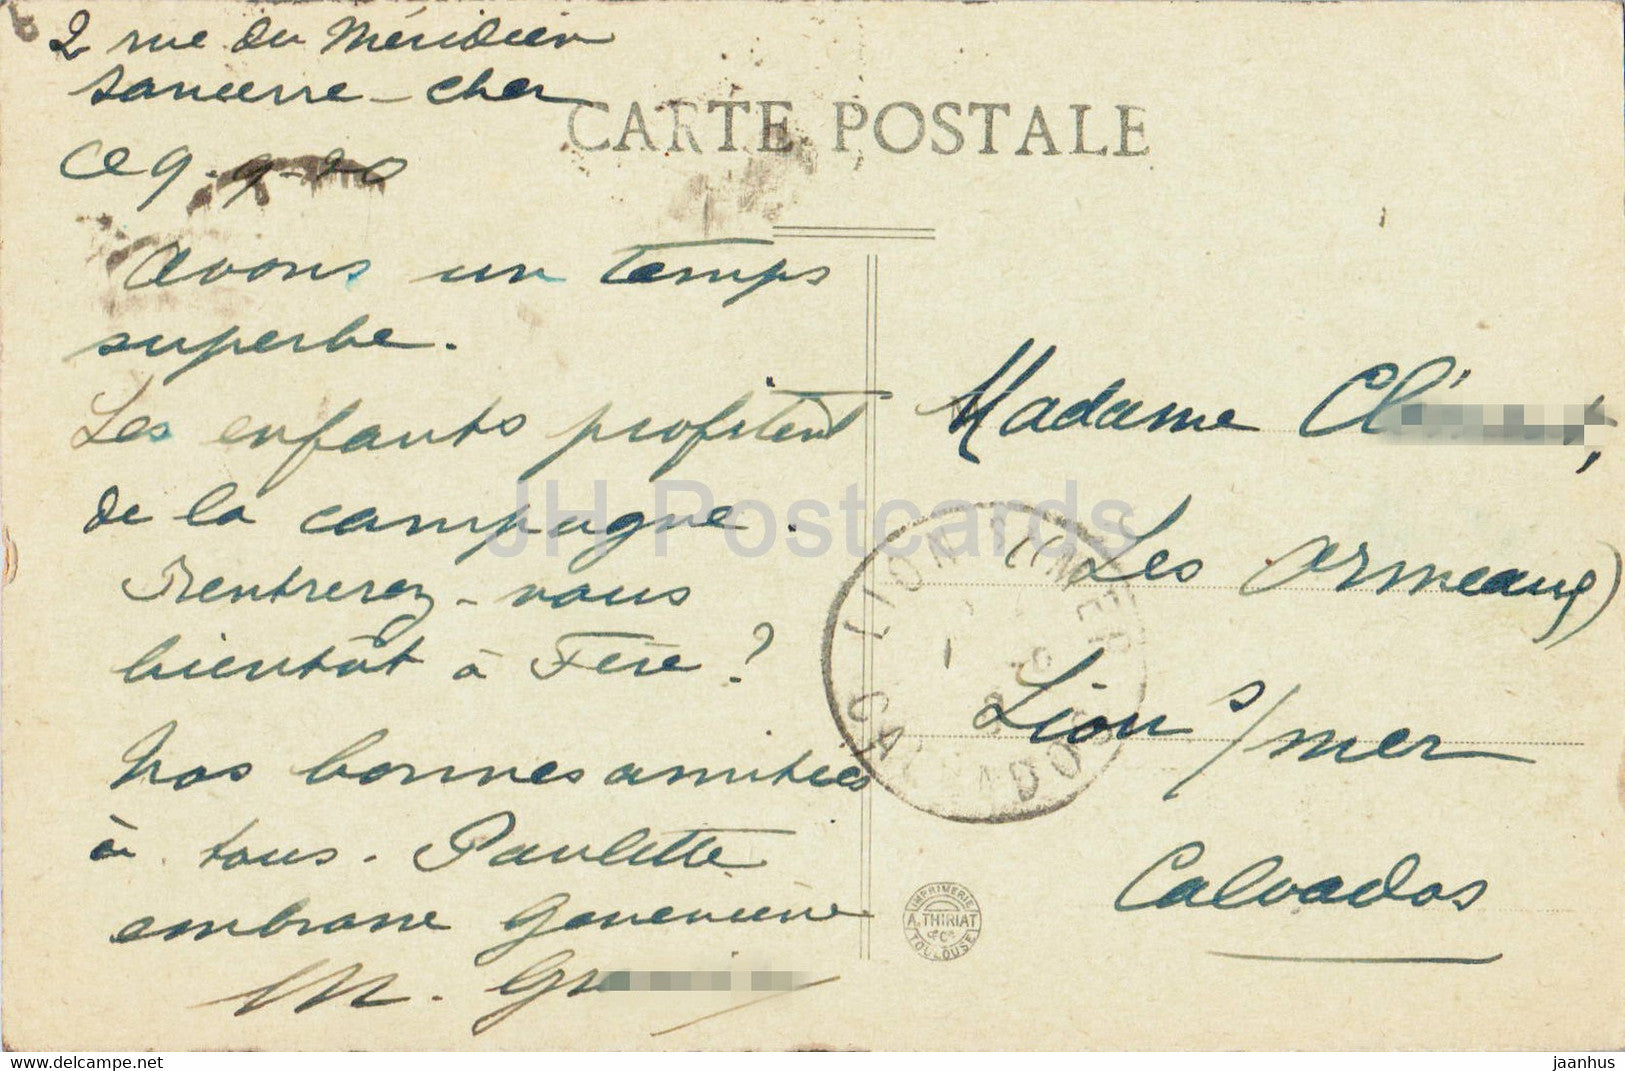 2 rue du Méridien
Sancerre - Cher
CARTE POSTALE
Ce 9-9-20
Avons un temps
superbe.
Les enfants profitent
de la campagne.
Rentrerez-vous
bientôt à Fère ?
Nos bonnes amitiés
à tous. Paulette
embrasse Geneviève
M.
Madame
(Les Ormeaux)
Lion s/mer
Calvados
LION SUR MER
CALVADOS
IMPRIMERIE
A. THIRIAT
& Cie
TOULOUSE
JH Postcards
delcampe.net
jaanhus